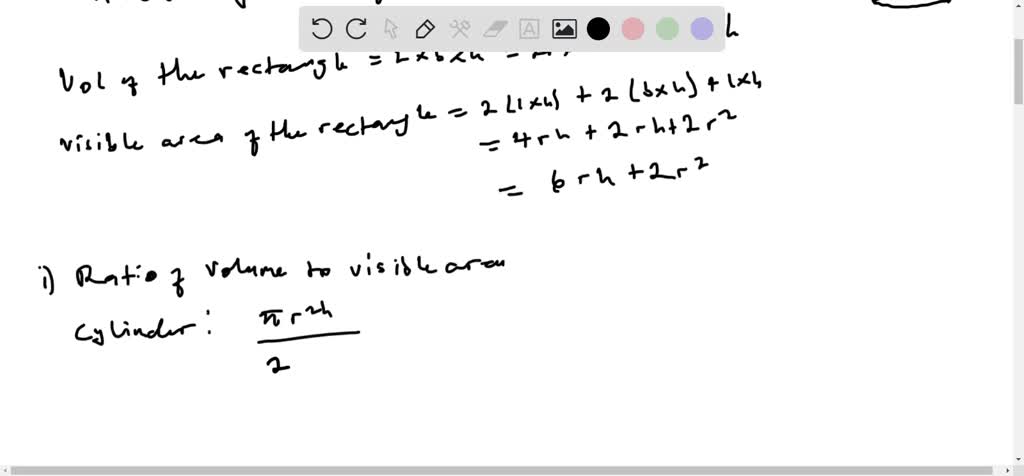 Vol of the rectangle = l × b × h =
visible area of the rectangle = 2(l×h) + 2(b×h) + l×b
= 4rh + 2rh + 2r²
= 6rh + 2r²
i) Ratio of volume to visible area
cylinder: πr²h
2